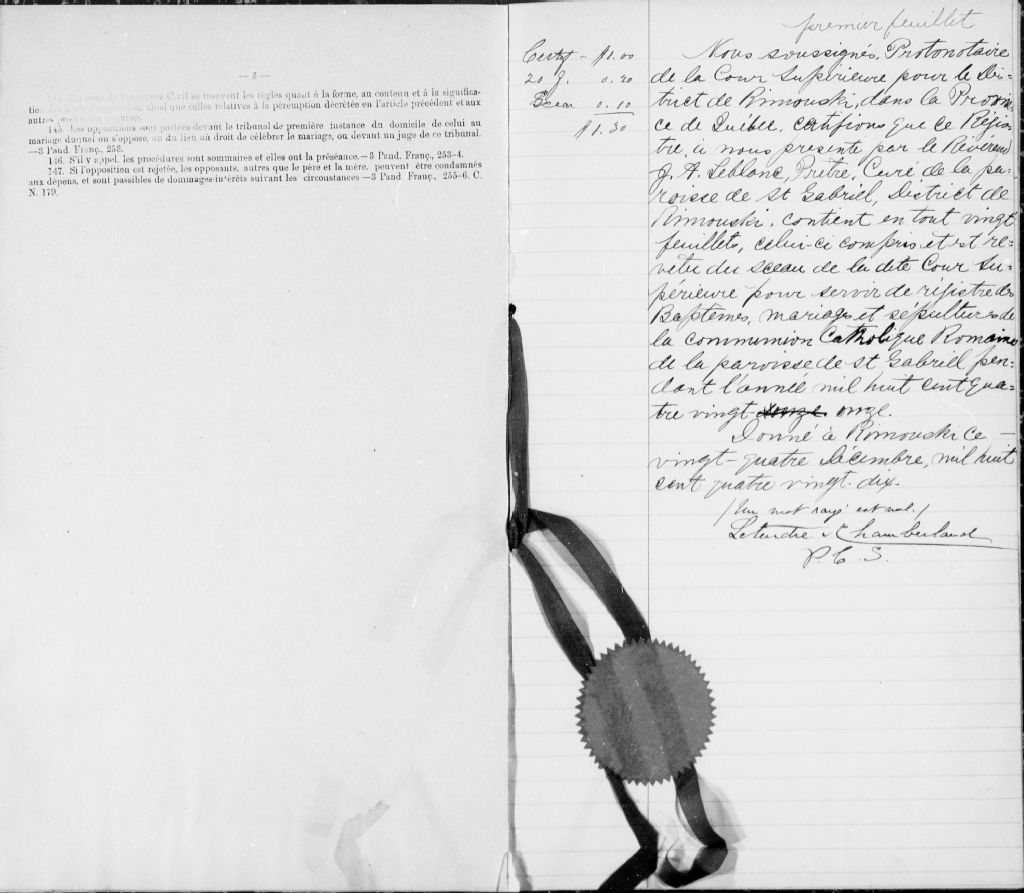 — 6 —
144. Au code de Procédure Civil se trouvent les règles quant à la forme, au contenu et à la significa-
tion des actes d'opposition, ainsi que celles relatives à la péremption décrétée en l'article précédent et aux
autres procédures requises.
145. Les oppositions sont portées devant le tribunal de première instance du domicile de celui au
mariage duquel on s'oppose, ou du lieu où droit de célébrer le mariage, ou devant un juge de ce tribunal.
—3 Pand. Franç., 253.
146. S'il y appel, les procédures sont sommaires et elles ont la préséance.—3 Pand. Franç., 253-4.
147. Si l'opposition est rejetée, les opposants, autres que le père et la mère, peuvent être condamnés
aux dépens, et sont passibles de dommages-intérêts suivant les circonstances —3 Pand. Franç., 255-6. C.
N. 179.
premier feuillet
Certif - $1.00
20 f. 0.20
Sceau 0.10
$1.30
Nous soussignés, Protonotaire
de la Cour Supérieure pour le Dis-
trict de Rimouski, dans la Provin-
ce de Québec, certifions que ce Régis-
tre, à nous présenté par le Révérend
J. A. Leblanc, Prêtre, Curé de la pa-
roisse de St Gabriel, District de
Rimouski, contient en tout vingt
feuillets, celui-ci compris et est re-
vêtu du sceau de la dite Cour Su-
périeure pour servir de régistre des
Baptêmes, mariages et sépultures de
la communion Catholique Romaine
de la paroisse de St Gabriel pen-
dant l'année mil huit cent qua-
tre vingt onze.
Donné à Rimouski ce —
vingt-quatre Décembre, mil huit
cent quatre vingt-dix.
/Un mot rayé est nul./
Letendre & Chamberland
P. C. S.